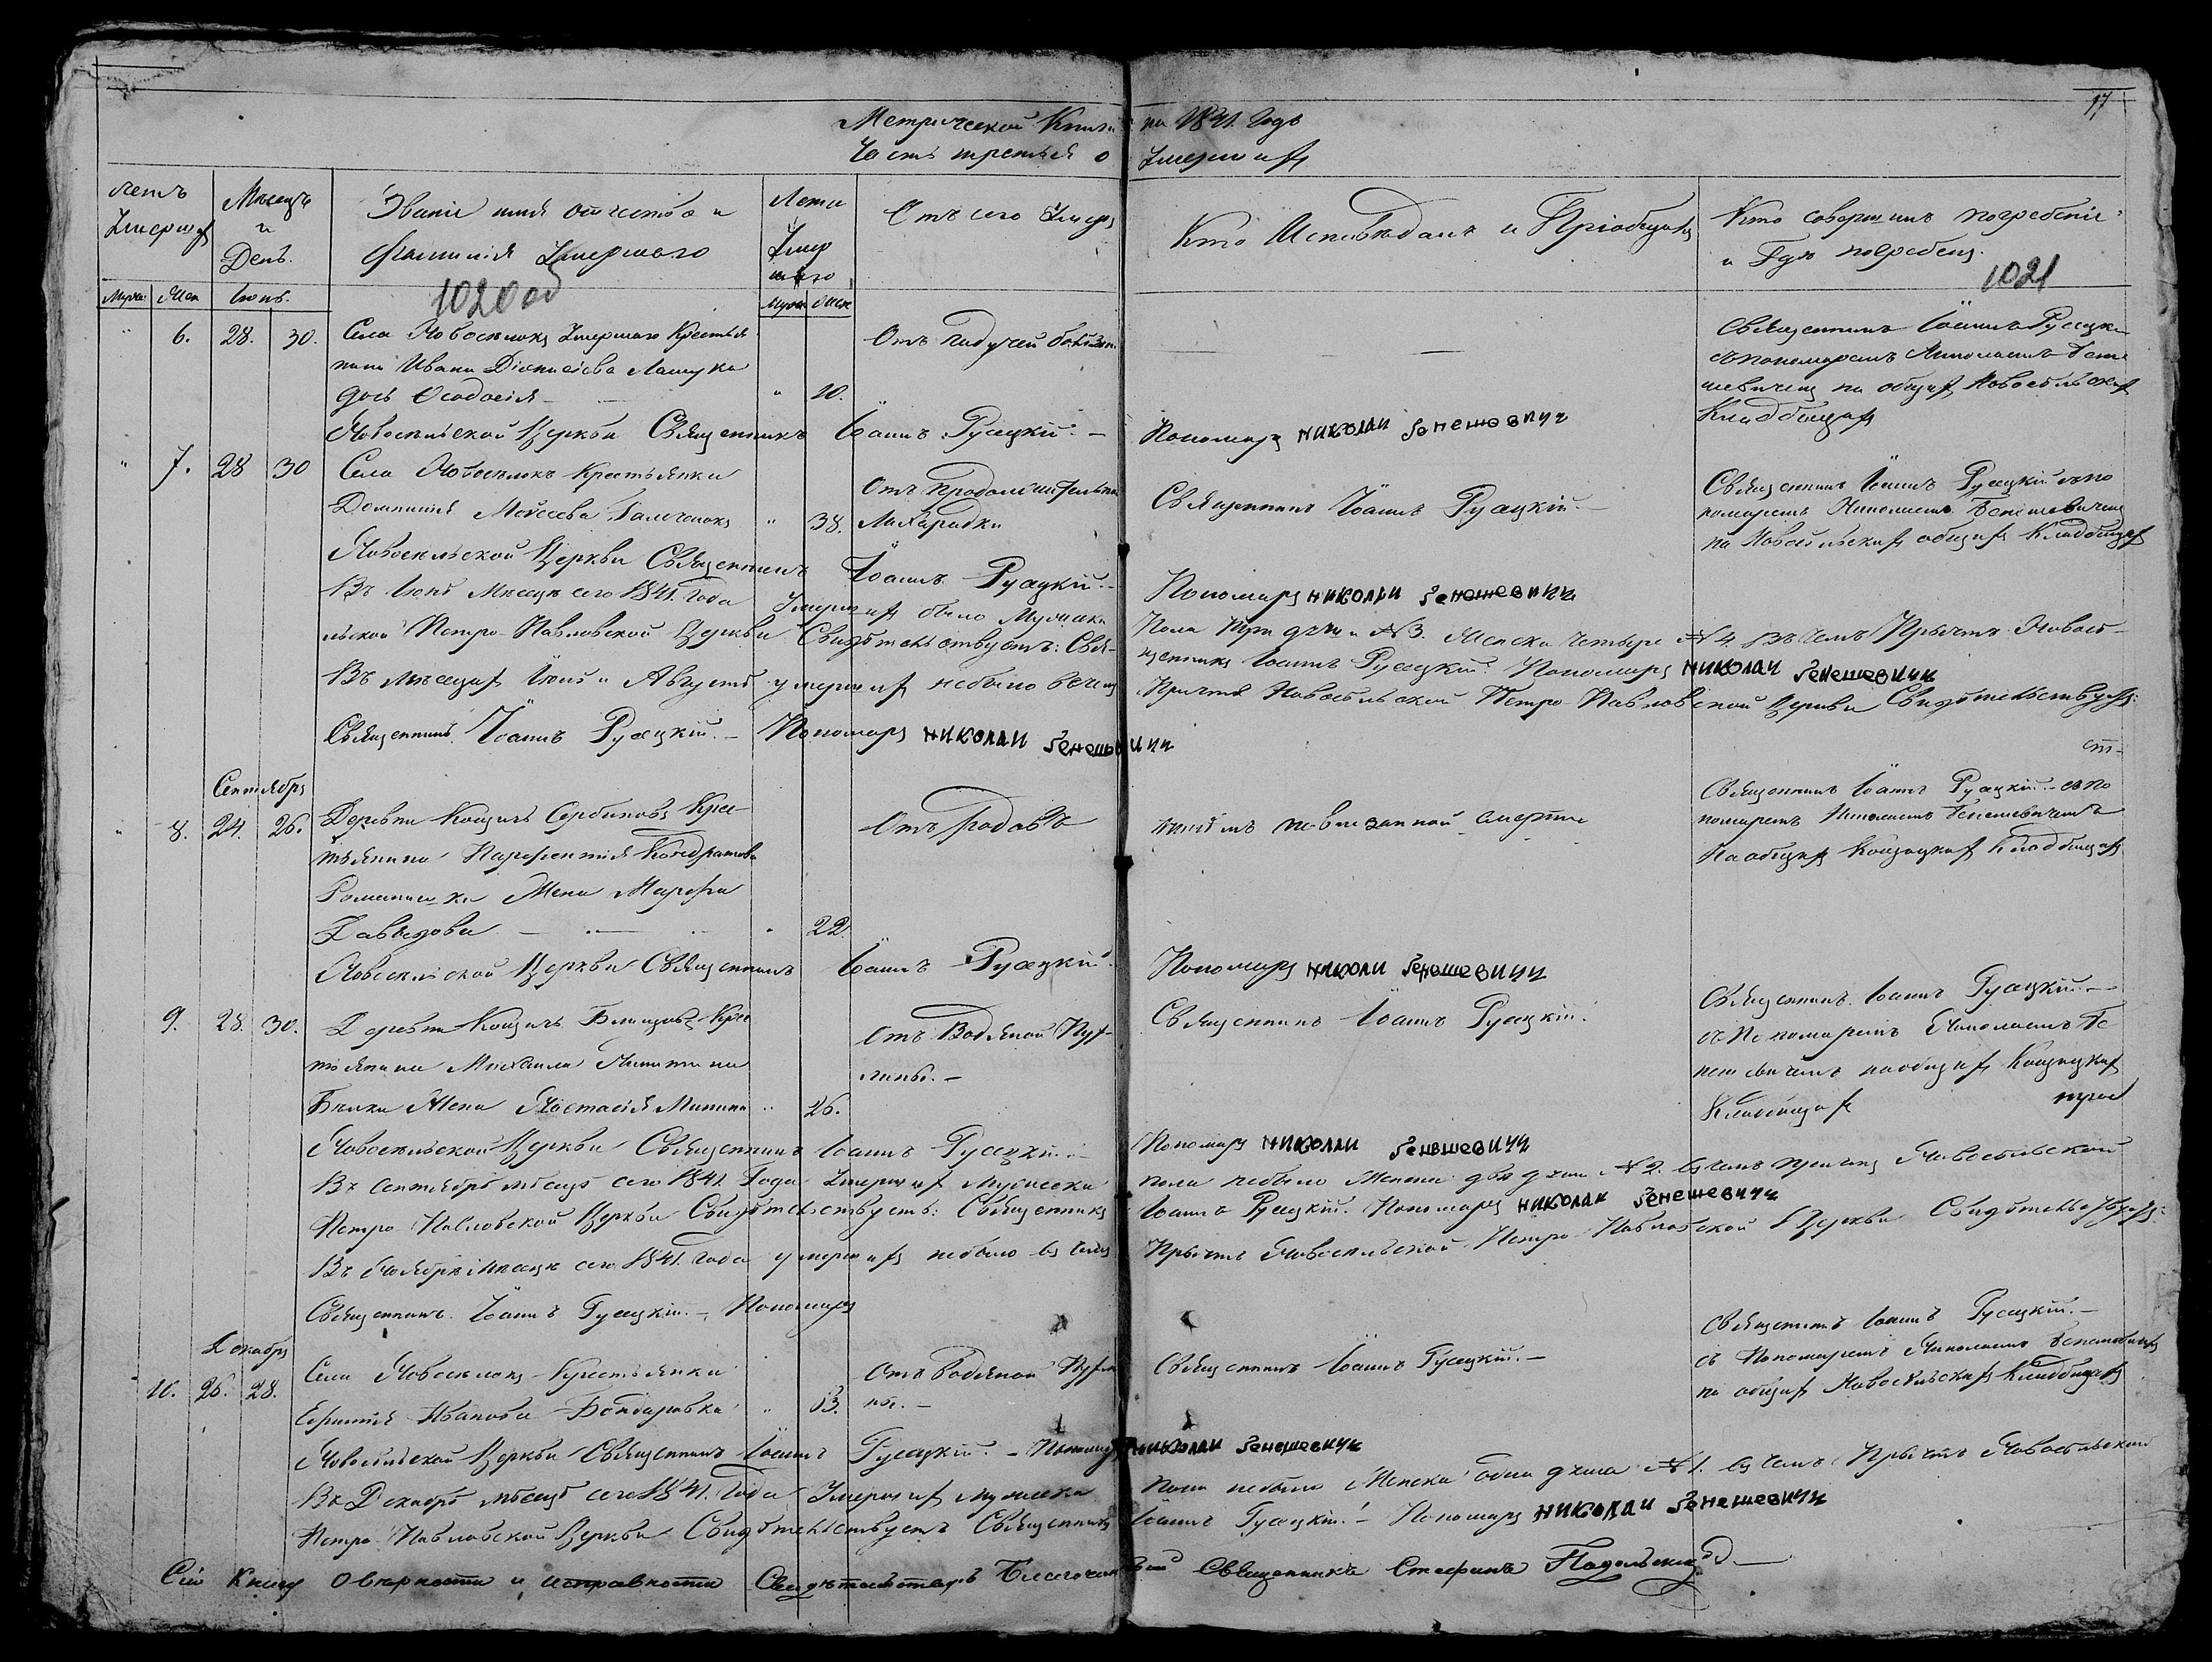 17
Метрической Книги на 1841. Годъ
Часть третья о Умершихъ
летъ Умершихъ
Мѣсяцъ и День.
Званіе имя отчество и фамилія Умершаго
Лета Умершаго
Отъ чего Умеръ
Кто Исповѣдалъ и Пріобщалъ
Кто совершилъ погребеніе и Гдѣ погребенъ.
Муж. Жен Іюнь.
Муж Жен
1020 об
1021
" 6. 28. 30.
Села Новоселокъ Умершаго Крестья
нина Ивана Діонисіева
дочь Ѳеодосія " 10.
Отъ падучей болѣзни
Священникъ Іоаннъ Русецкій
съ пономаремъ Николаемъ Бене
шевичемъ на общихъ Новосельскихъ
Кладбищахъ
Новосельской Церкви Священникъ Іоаннъ Русецкій. Пономарь николаи бенешевичч
" 7. 28 30
Села Новоселокъ Крестьянка
Домникія Моисеева " 38.
Отъ продолжительной
Лихарадки
Священникъ Іоаннъ Русецкій.
Священникъ Іоаннъ Русецкій съ по
номаремъ Николаемъ Бенешевичемъ
на Новосельскихъ общихъ Кладбищахъ
Новосельской Церкви Священникъ Іоаннъ Русецкій. Пономарь николаи бенешевичч
Въ Іюнѣ Мѣсяцѣ сего 1841. Года Умершихъ было Мужска Пола три души №3. Женска четыре №4. въ чемъ Прычтъ Новосе-
льской Петро-Павловской Церкви Свидѣтельствуетъ: Свя- щенникъ Іоаннъ Русецкій. Пономарь николаи бенешевичч
Въ мѣсяцахъ Іюлѣ и Августѣ умершихъ небыло вчемъ Причтъ Новосельской Петро-Павловской Церкви Свидѣтельствуетъ:
Священникъ Іоаннъ Русецкій. Пономарь николаи бенешевичч
Сентябрь
" 8. 24. 26.
Деревни Кощичъ Сербиновъ Крес
тьянина Парфентія Кондратова
Жена Марфа
Давыдова " 22.
Отъ родовъ
повнезапной смерти
Священникъ Іоаннъ Русецкій съ по
номаремъ Николаемъ Бенешевичемъ
На общихъ Кощицкихъ Кладбищахъ
Новосельской Церкви Священникъ Іоаннъ Русецкій. Пономарь николаи бенешевичч
9. 28. 30.
Деревни Кощичъ Крес
тьянина Михаила Никитина
Жена Настасія " 26.
Отъ Водяной Пух-
лины.
Священникъ Іоаннъ Русецкій.
Священникъ Іоаннъ Русецкій.
съ Пономаремъ Николаемъ Бе
нешевичемъ наобщихъ Кощицкихъ
Кладбищахъ
Новосельской Церкви Священникъ Іоаннъ Русецкій. Пономарь николаи бенешевичч
Въ Сентябрѣ мѣсяцѣ сего 1841. Года Умершихъ Мужеска пола небыло Женска двѣ души №2. въ чемъ причтъ Новосельской
Петро-Павловской Церкви Свидѣтельствуетъ: Священникъ Іоаннъ Русецкій. Пономарь николаи бенешевичч
Въ Ноябрѣ Мѣсяцѣ сего 1841. Года умершихъ небыло въ чемъ Прычтъ Новосельской Петро-Павловской Церкви Свидѣтельствуетъ:
Священникъ Іоаннъ Русецкій. Пономарь
Декабрь
10. 26. 28.
Села Новоселокъ Крестьянка
Ефимія Иванова Бондаровка "
Отъ Водяной Пухли
ны.
Священникъ Іоаннъ Русецкій.
Священникъ Іоаннъ Русецкій.
съ Пономаремъ Николаемъ Бенешевичемъ
на общихъ Новосельскихъ Кладбищахъ
Новосельской Церкви Священникъ Іоаннъ Русецкій. Пономарь николаи бенешевичч
Въ Декабрѣ мѣсяцѣ сего 1841. Года Умершихъ мужеска пола небыло Женска одна душа №1. въ чемъ Прычтъ Новосельской
Петро Павловской Церкви Свидѣтельствуетъ Священникъ Іоаннъ Русецкій. Пономарь николаи бенешевичч
Сію Книгу Оверности и исправности Свидѣтельствовалъ Благочинный Священникъ Стефанъ Подольский